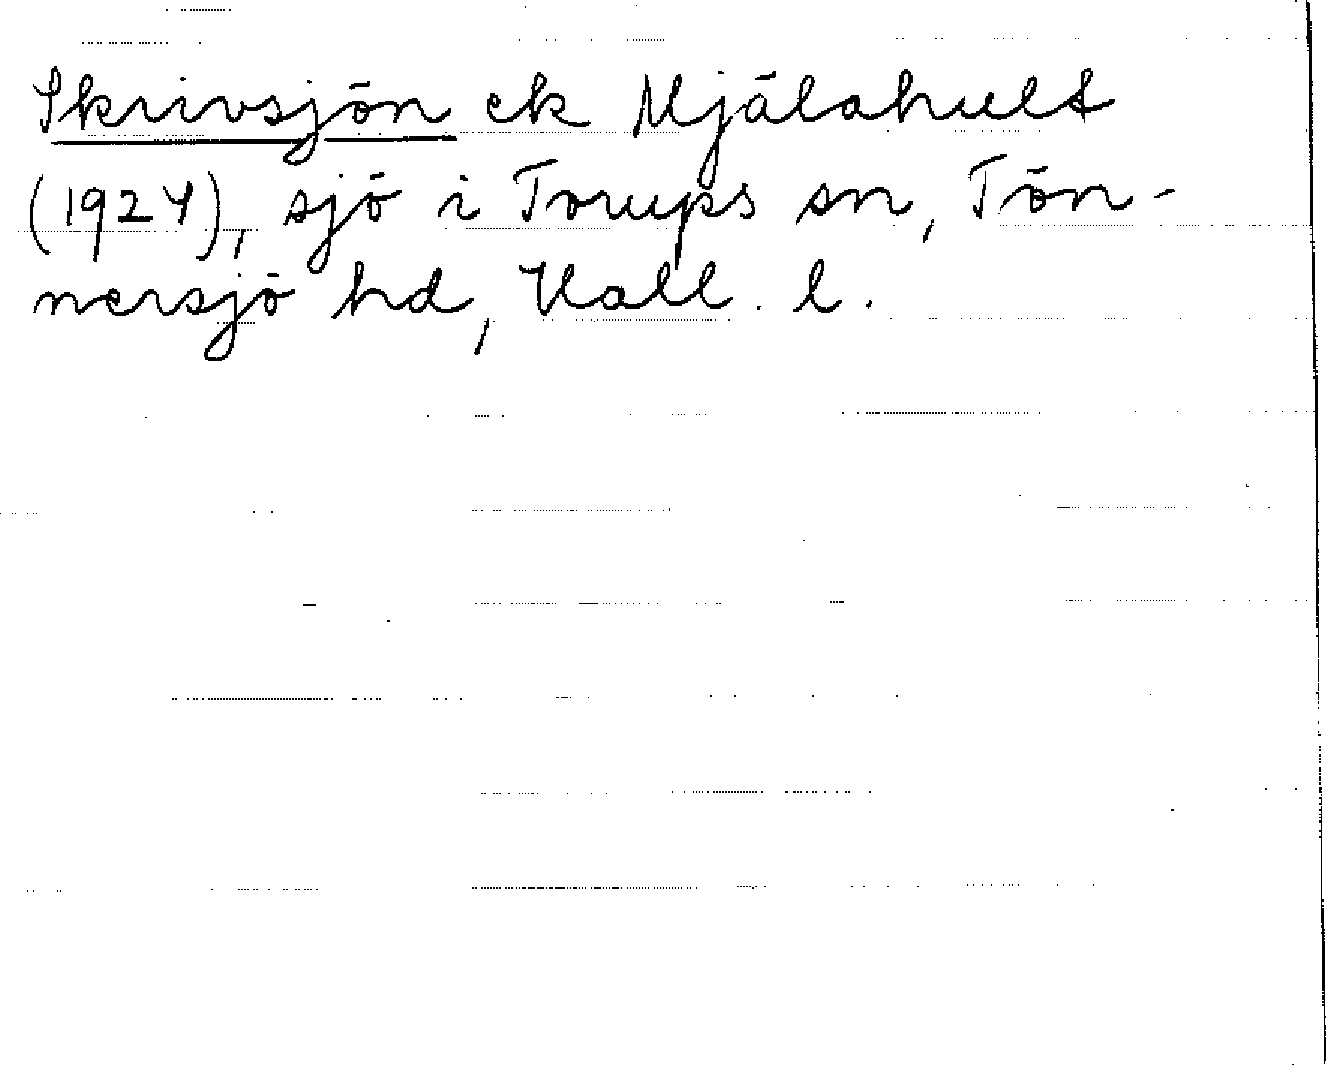 Skrivsjön ek Mjälahult
(1924), sjö i Torups sn, Tön-
nersjö hd, Hall. l.